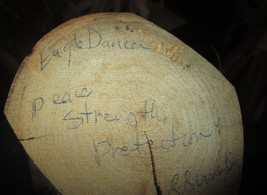 Eagle Dancer
peace
Strength,
Protection